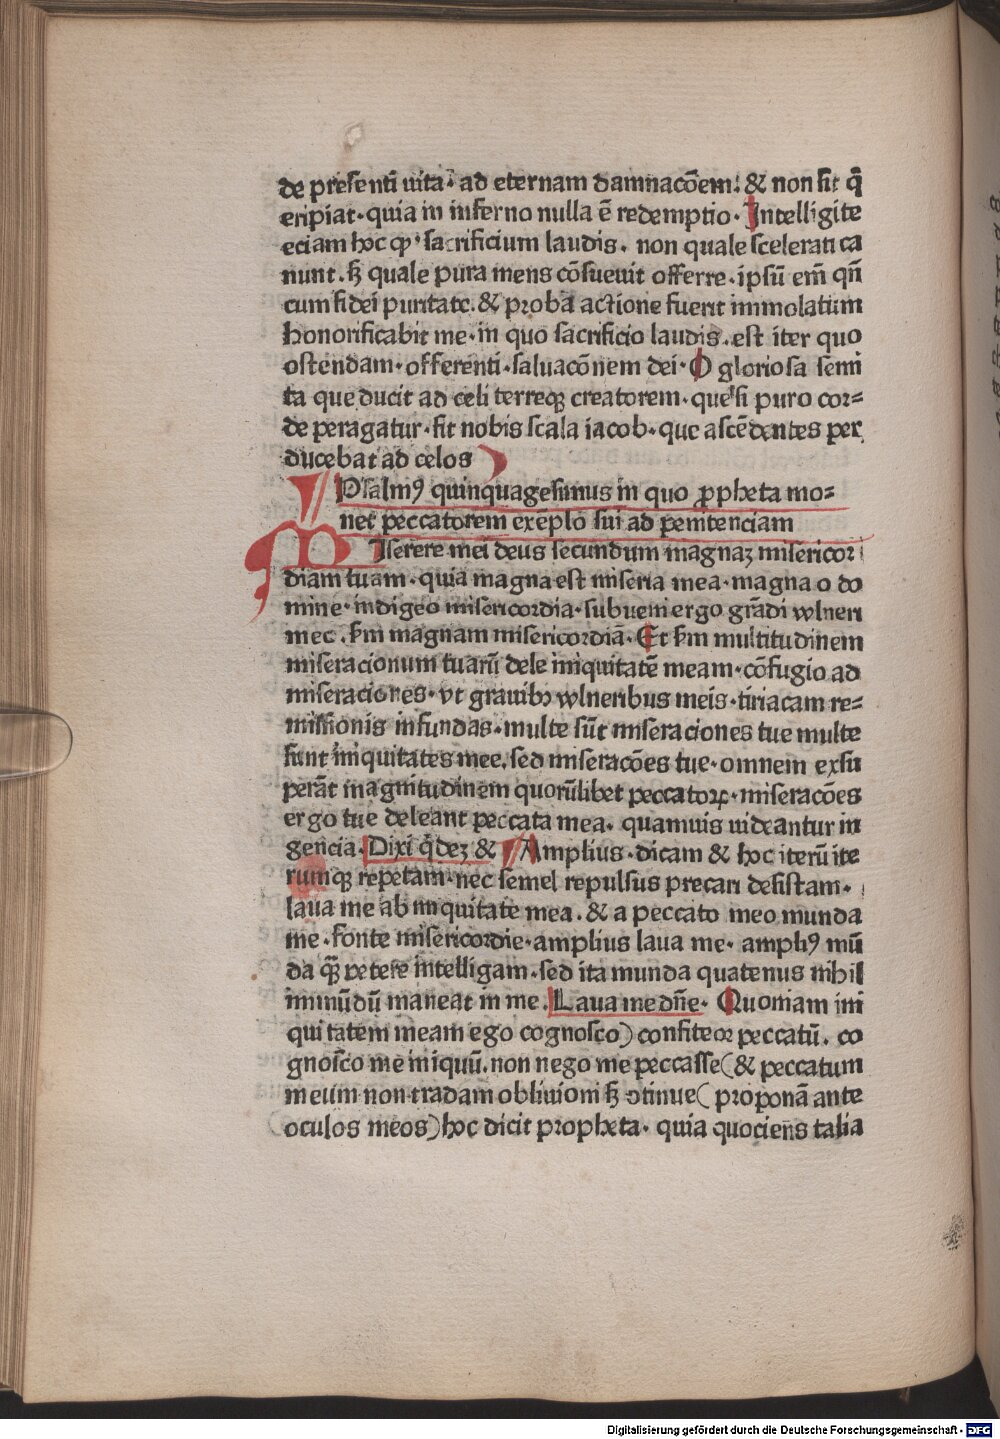 de presenti uita· ad eternam damnacõem: & non sit q̃
eripiat· quia in inferno nulla ẽ redemptio· Intelligite
eciam hoc ꝙ· sacrificium laudis. non quale scelerati ca
nunt. ſꝫ quale pura mens cõsueuit offerre· ipsũ em̃ qñ
cum fidei puritate. & proba actione fuerit immolatum
honorificabit me· in quo sacrificio laudis. est iter quo
ostendam· offerenti· saluacõnem dei· O gloriosa semi
ta que ducit ad celi terreqꝫ creatorem· que si puro cor=
de peragatur· fit nobis scala iacob· que ascẽdentes per
ducebat ad celos
Psalmꝰ quinquagesimus in quo ꝓpheta mo=
net peccatorem exẽplo sui ad penitenciam
MIserere mei deus secundum magnaꝫ misericor
diam tuam· quia magna est miseria mea· magna o do
mine· indigeo misericordia· subueni ergo grãdi wlneri
meo. ẜm magnam misericordiã· Et ẜm multitudinem
miseracionum tuarũ dele iniquitatẽ meam· cõfugio ad
miseraciones· vt grauibꝫ wlneribus meis· tiriacam re=
missionis infundas· multe sũt miseraciones tue multe
sunt iniquitates mee. sed miseracões tue· omnem exsu
perãt magnitudinem quorũlibet peccatoꝝ· miseracões
ergo tue deleant peccata mea. quamuis uideantur in
gencia· Dixi q̃deꝫ & Amplius· dicam & hoc iterũ ite
rumqꝫ repetam· nec semel repulsus precari desistam·
laua me ab iniquitate mea. & a peccato meo munda
me· fonte misericordie· amplius laua me· ampliꝰ mũ
da qꝫ̃ petere intelligam· sed ita munda quatenus nihil
immũdũ maneat in me. Laua me dñe· Quoniam ini
quitatem meam ego cognosco) confiteor peccatũ. co
gnosco me iniquũ. non nego me peccasse (& peccatum
meum non tradam obliuioni ſꝫ ↄtinue( proponã ante
(oculos meos) hoc dicit propheta· quia quociens talia
Digitalisierung gefördert durch die Deutsche Forschungsgemeinschaft - DFG